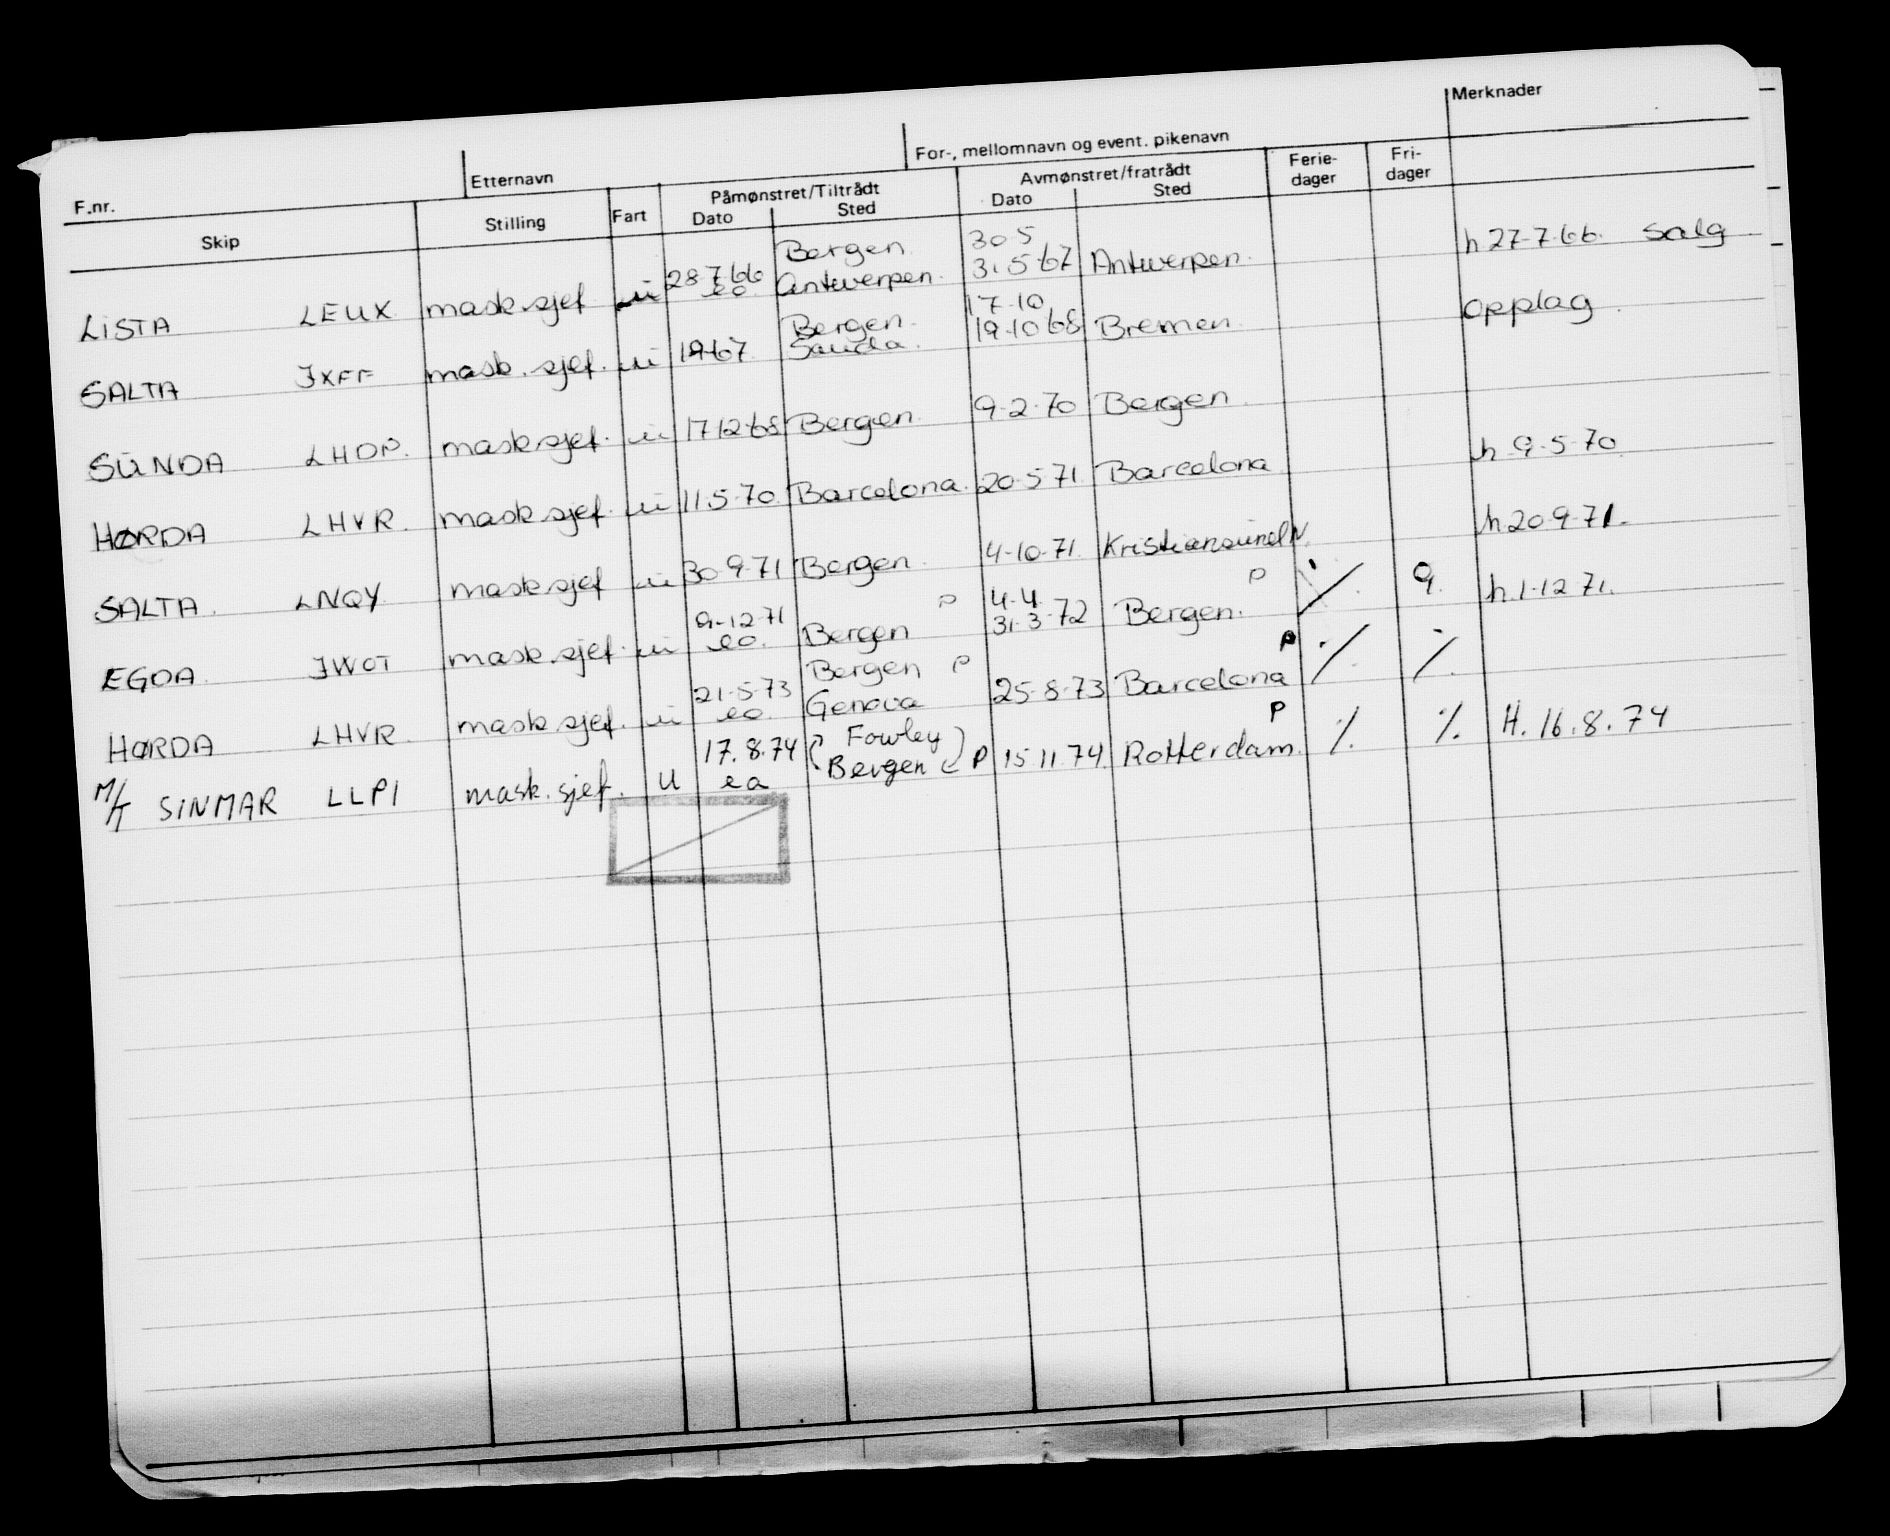 F.nr. Etternavn For-, mellomnavn og event. pikenavn Merknader
Skip Stilling Fart Påmønstret/Tiltrådt Dato Sted Avmønstret/fratrådt Dato Sted Ferie-dager Fri-dager
Bergen. 30.5
LISTA LEUX. mask.sjef u 28.7.66 eo. Antwerpen. 31.5.67 Antwerpen. h 27.7.66. Salg
Bergen. 17.10
SALTA JXFF mask. sjef. u 1.9.67 Sauda. 19.10.68 Bremen. Opplag.
SUNDA LHOP. mask.sjef. u 17.12.68 Bergen. 9.2.70 Bergen.
HØRDA LHVR. mask.sjef. u 11.5.70. Barcelona. 20.5.71. Barcelona h 9.5.70
SALTA. LNQY mask.sjef u 30.9.71 Bergen. 4.10.71. Kristiansund N. h.20.9.71.
9.12.71 P 4.4 P
EGDA. JWOT mask.sjef. u eo. Bergen 31.3.72 Bergen. ./. 9. h.1.12.71.
21.5.73 Bergen P P
HØRDA LHVR. mask.sjef. u eo. Genova 25.8.73 Barcelona ./. ./.
17.8.74 ( Fowley ) P
M/T SINMAR LLPI mask. sjef. U ea Bergen P 15.11.74. Rotterdam. ./. ./. H. 16.8.74